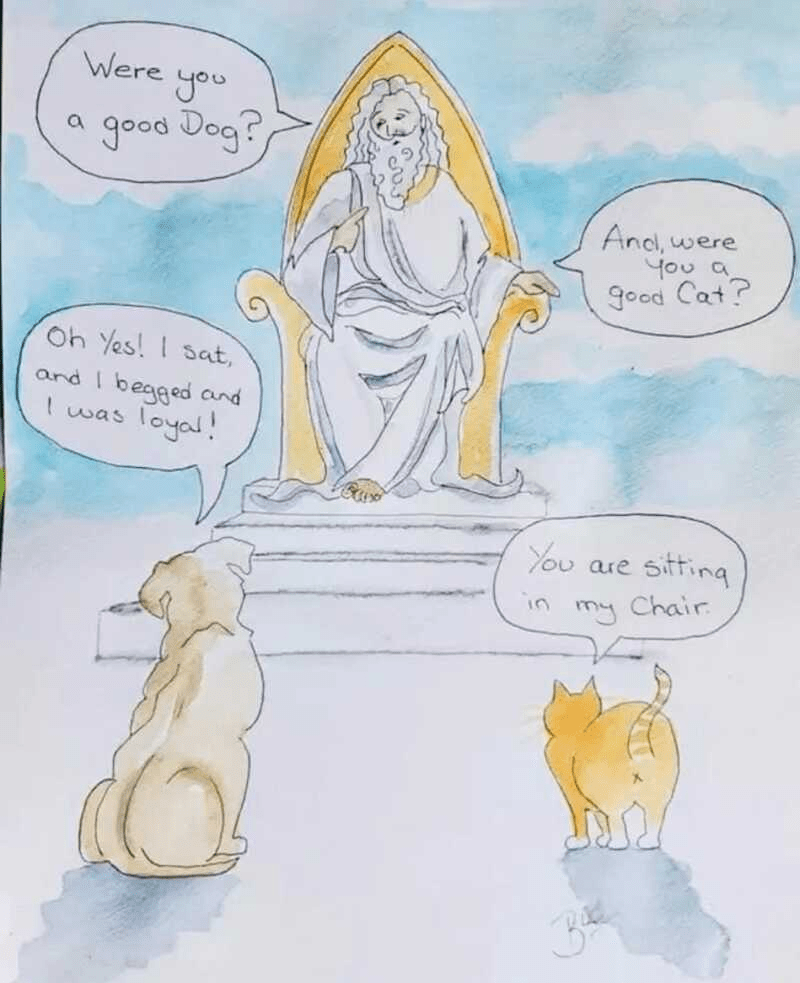 Were you
a good Dog?
And, were
you a
good Cat?
Oh Yes! I sat,
and I begged and
I was loyal!
You are sitting
in my Chair.